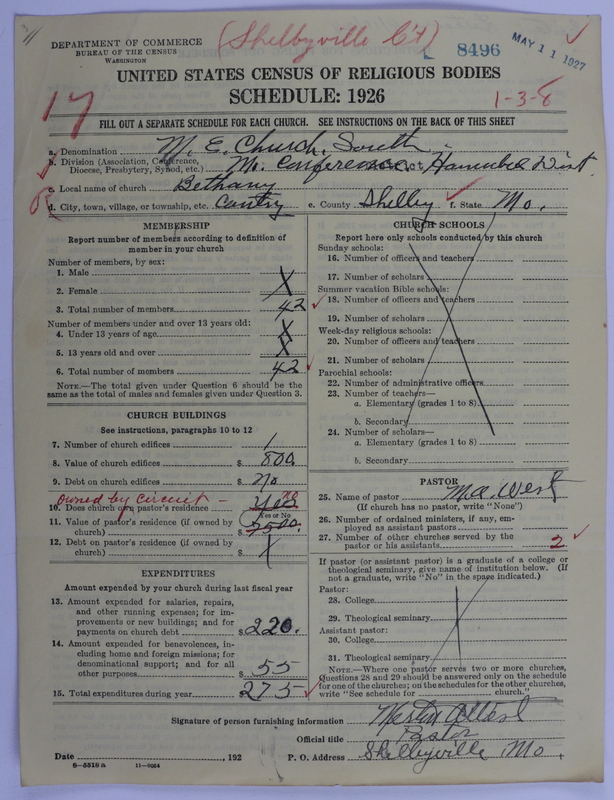 (Shelbyville Ct)
DEPARTMENT OF COMMERCE
BUREAU OF THE CENSUS
WASHINGTON
8496
MAY 11 1927
UNITED STATES CENSUS OF RELIGIOUS BODIES
SCHEDULE: 1926
17
1-3-8
FILL OUT A SEPARATE SCHEDULE FOR EACH CHURCH. SEE INSTRUCTIONS ON THE BACK OF THIS SHEET
a. Denomination M. E. Church, South
b. Division (Association, Conference, Diocese, Presbytery, Synod, etc.) Mo. Conference. Hannibal Dist.
c. Local name of church Bethany
d. City, town, village, or township, etc. Cuntry e. County Shelby f. State Mo.
MEMBERSHIP
Report number of members according to definition of
member in your church
Number of members, by sex:
1. Male X
2. Female
3. Total number of members 42
Number of members under and over 13 years old:
4. Under 13 years of age X
5. 13 years old and over X
6. Total number of members 42
NOTE.—The total given under Question 6 should be
same as the total of males and females given under Question 3.
CHURCH BUILDINGS
See instructions, paragraphs 10 to 12
7. Number of church edifices 1
8. Value of church edifices $ 800
9. Debt on church edifices $ No
owned by circuit — no
10. Does church own pastor's residence Yes
Yes or No
11. Value of pastor's residence (if owned by
church) $ 2500.
12. Debt on pastor's residence (if owned by
church) $ X
EXPENDITURES
Amount expended by your church during last fiscal year
13. Amount expended for salaries, repairs,
and other running expenses; for im-
provements or new buildings; and for
payments on church debt $ 220.
14. Amount expended for benevolences, in-
cluding home and foreign missions; for
denominational support; and for all
other purposes $ 55
15. Total expenditures during year $ 275
CHURCH SCHOOLS
Report here only schools conducted by this church
Sunday schools:
16. Number of officers and teachers
17. Number of scholars
Summer vacation Bible schools:
18. Number of officers and teachers
19. Number of scholars
Week-day religious schools:
20. Number of officers and teachers
21. Number of scholars
Parochial schools:
22. Number of administrative officers
23. Number of teachers—
a. Elementary (grades 1 to 8)
b. Secondary
24. Number of scholars—
a. Elementary (grades 1 to 8)
b. Secondary
PASTOR
25. Name of pastor M. A. West
(If church has no pastor, write "None")
26. Number of ordained ministers, if any, em-
ployed as assistant pastors
27. Number of other churches served by the
pastor or his assistants 2
If pastor (or assistant pastor) is a graduate of a college or
theological seminary, give name of institution below. (If
not a graduate, write "No" in the space indicated.)
Pastor:
28. College
29. Theological seminary
Assistant pastor:
30. College
31. Theological seminary
NOTE.—Where one pastor serves two or more churches,
Questions 28 and 29 should be answered only on the schedule
for one of the churches; on the schedules for the other churches,
write "See schedule for church."
Signature of person furnishing information
Official title Pastor
Date , 192 P. O. Address Shelbyville Mo.
6-5518a 11-9004